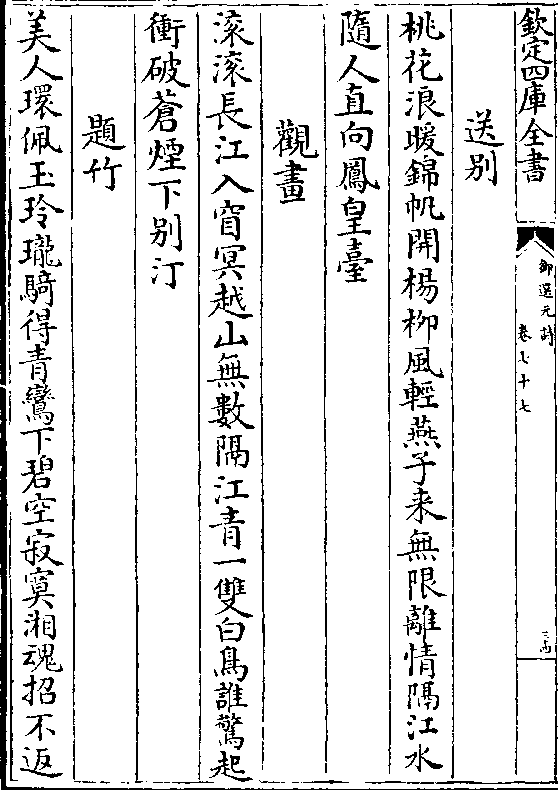 欽定四庫全書
御選元詩
卷七十七
送别
桃花浪暖錦帆開楊栁風輕燕子来無限離情隔江水
隨人直向鳳皇臺
觀畫
滚滚長江入窅冥越山無數隔江青一雙白鳥誰驚起
衝破蒼煙下别汀
題竹
美人環佩玉玲瓏騎得青鸞下碧空寂寞湘魂招不返